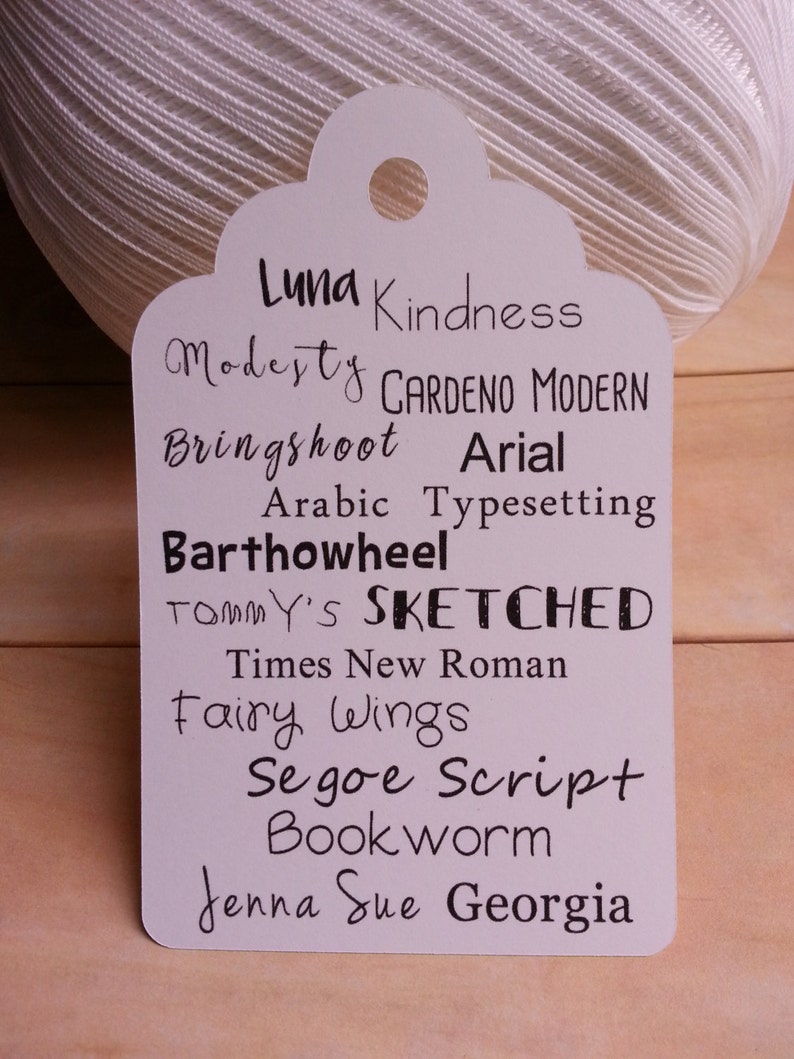 Luna Kindness
Modesty
CARDENO MODERN
Bringshoot Arial
Arabic Typesetting
Barthowheel
TOMMY'S SKETCHED
Times New Roman
Fairy Wings
Segoe Script
Bookworm
Jenna Sue Georgia